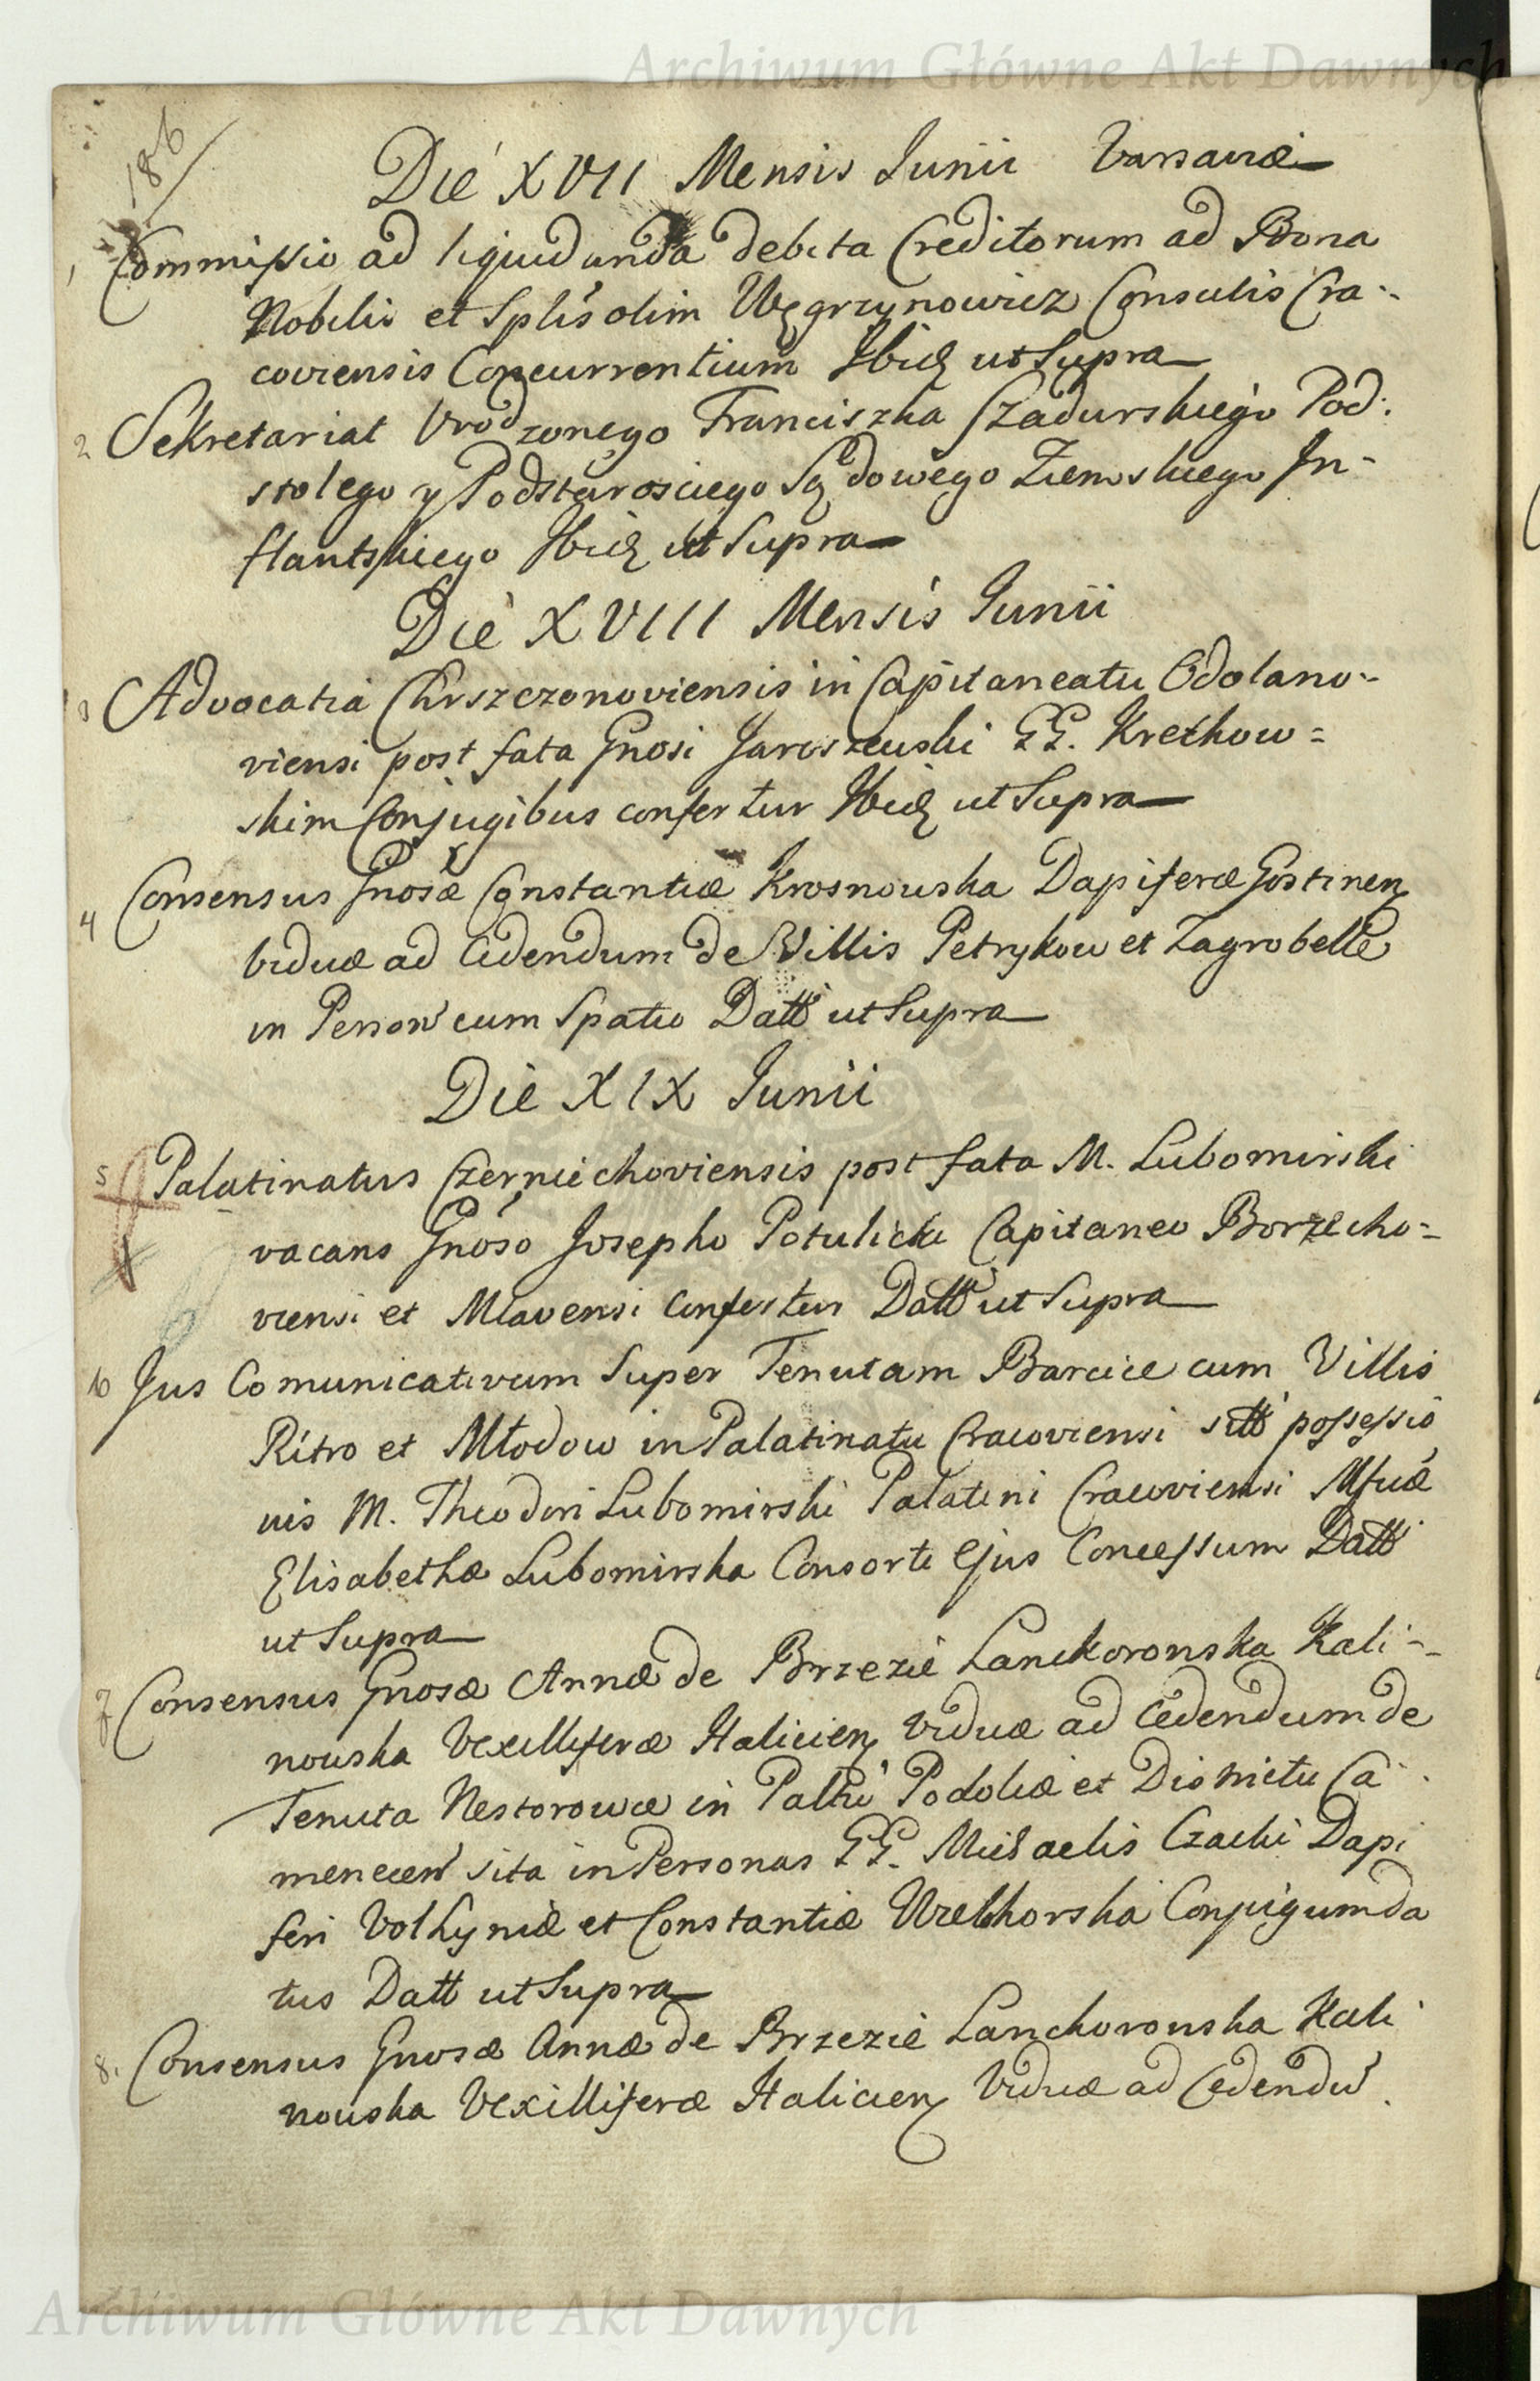 Archiwum Główne Akt Dawnych
186
Die XVII Mensis Junii Varsaviæ
1 Commissio ad liquidanda debita Creditorum ad Bona
Nobilis et Splis olim Węgrzynowicz Consulis Cra-
coviensis Concurrentium Ibid ut Supra
2 Sekretariat Vrodzonego Franciszka Szadurskiego Pod:
stolego y Podstarosciego Sądowego Ziemskiego In-
flantskiego Ibid ut Supra
Die XVIII Mensis Junii
3 Advocatia Chrszczonoviensis in Capitaneatu Odolano-
viensi post fata Gnosi Jaroszewski GG. Krethow=
skim Conjugibus confertur Ibid ut Supra
4 Consensus Gnosæ Constantiæ Krosnowska Dapiferæ Gostinen
Viduæ ad Cedendum de Villis Petrykow et Zagrobelle
in Person cum Spatio Datt ut Supra
Die XIX Junii
5 Palatinatus Czerniechoviensis post fata M. Lubomirski
vacans Gnoso Josepho Potulicki Capitaneo Borzecho=
viensi et Mlavensi Confertur Datt ut Supra
6 Jus Comunicativum Super Tenutam Barcice cum Villis
Ritro et Młodow in Palatinatu Cracoviensi sitt possessio
nis M. Theodori Lubomirski Palatini Cracoviensi Mfcæ
Elisabethæ Lubomirska Consorti Ejus Concessum Datt
ut Supra
7 Consensus Gnosæ Annæ de Brzezie Lanckoronska Kali-
nouska Vexilliferæ Halicien Viduæ ad Cedendum de
Tenuta Nestorowce in Paltu Podoliæ et Districtu Ca
menecen sita in Personas GG. Michaelis Czacki Dapi
feri Volhyniæ et Constantiæ Wielhorska Conjugum da
tus Datt ut Supra
8. Consensus Gnosæ Annæ de Brzezie Lanckoronska Kali
nouska Vexilliferæ Halicien Viduæ ad Cedendu
Archiwum Główne Akt Dawnych